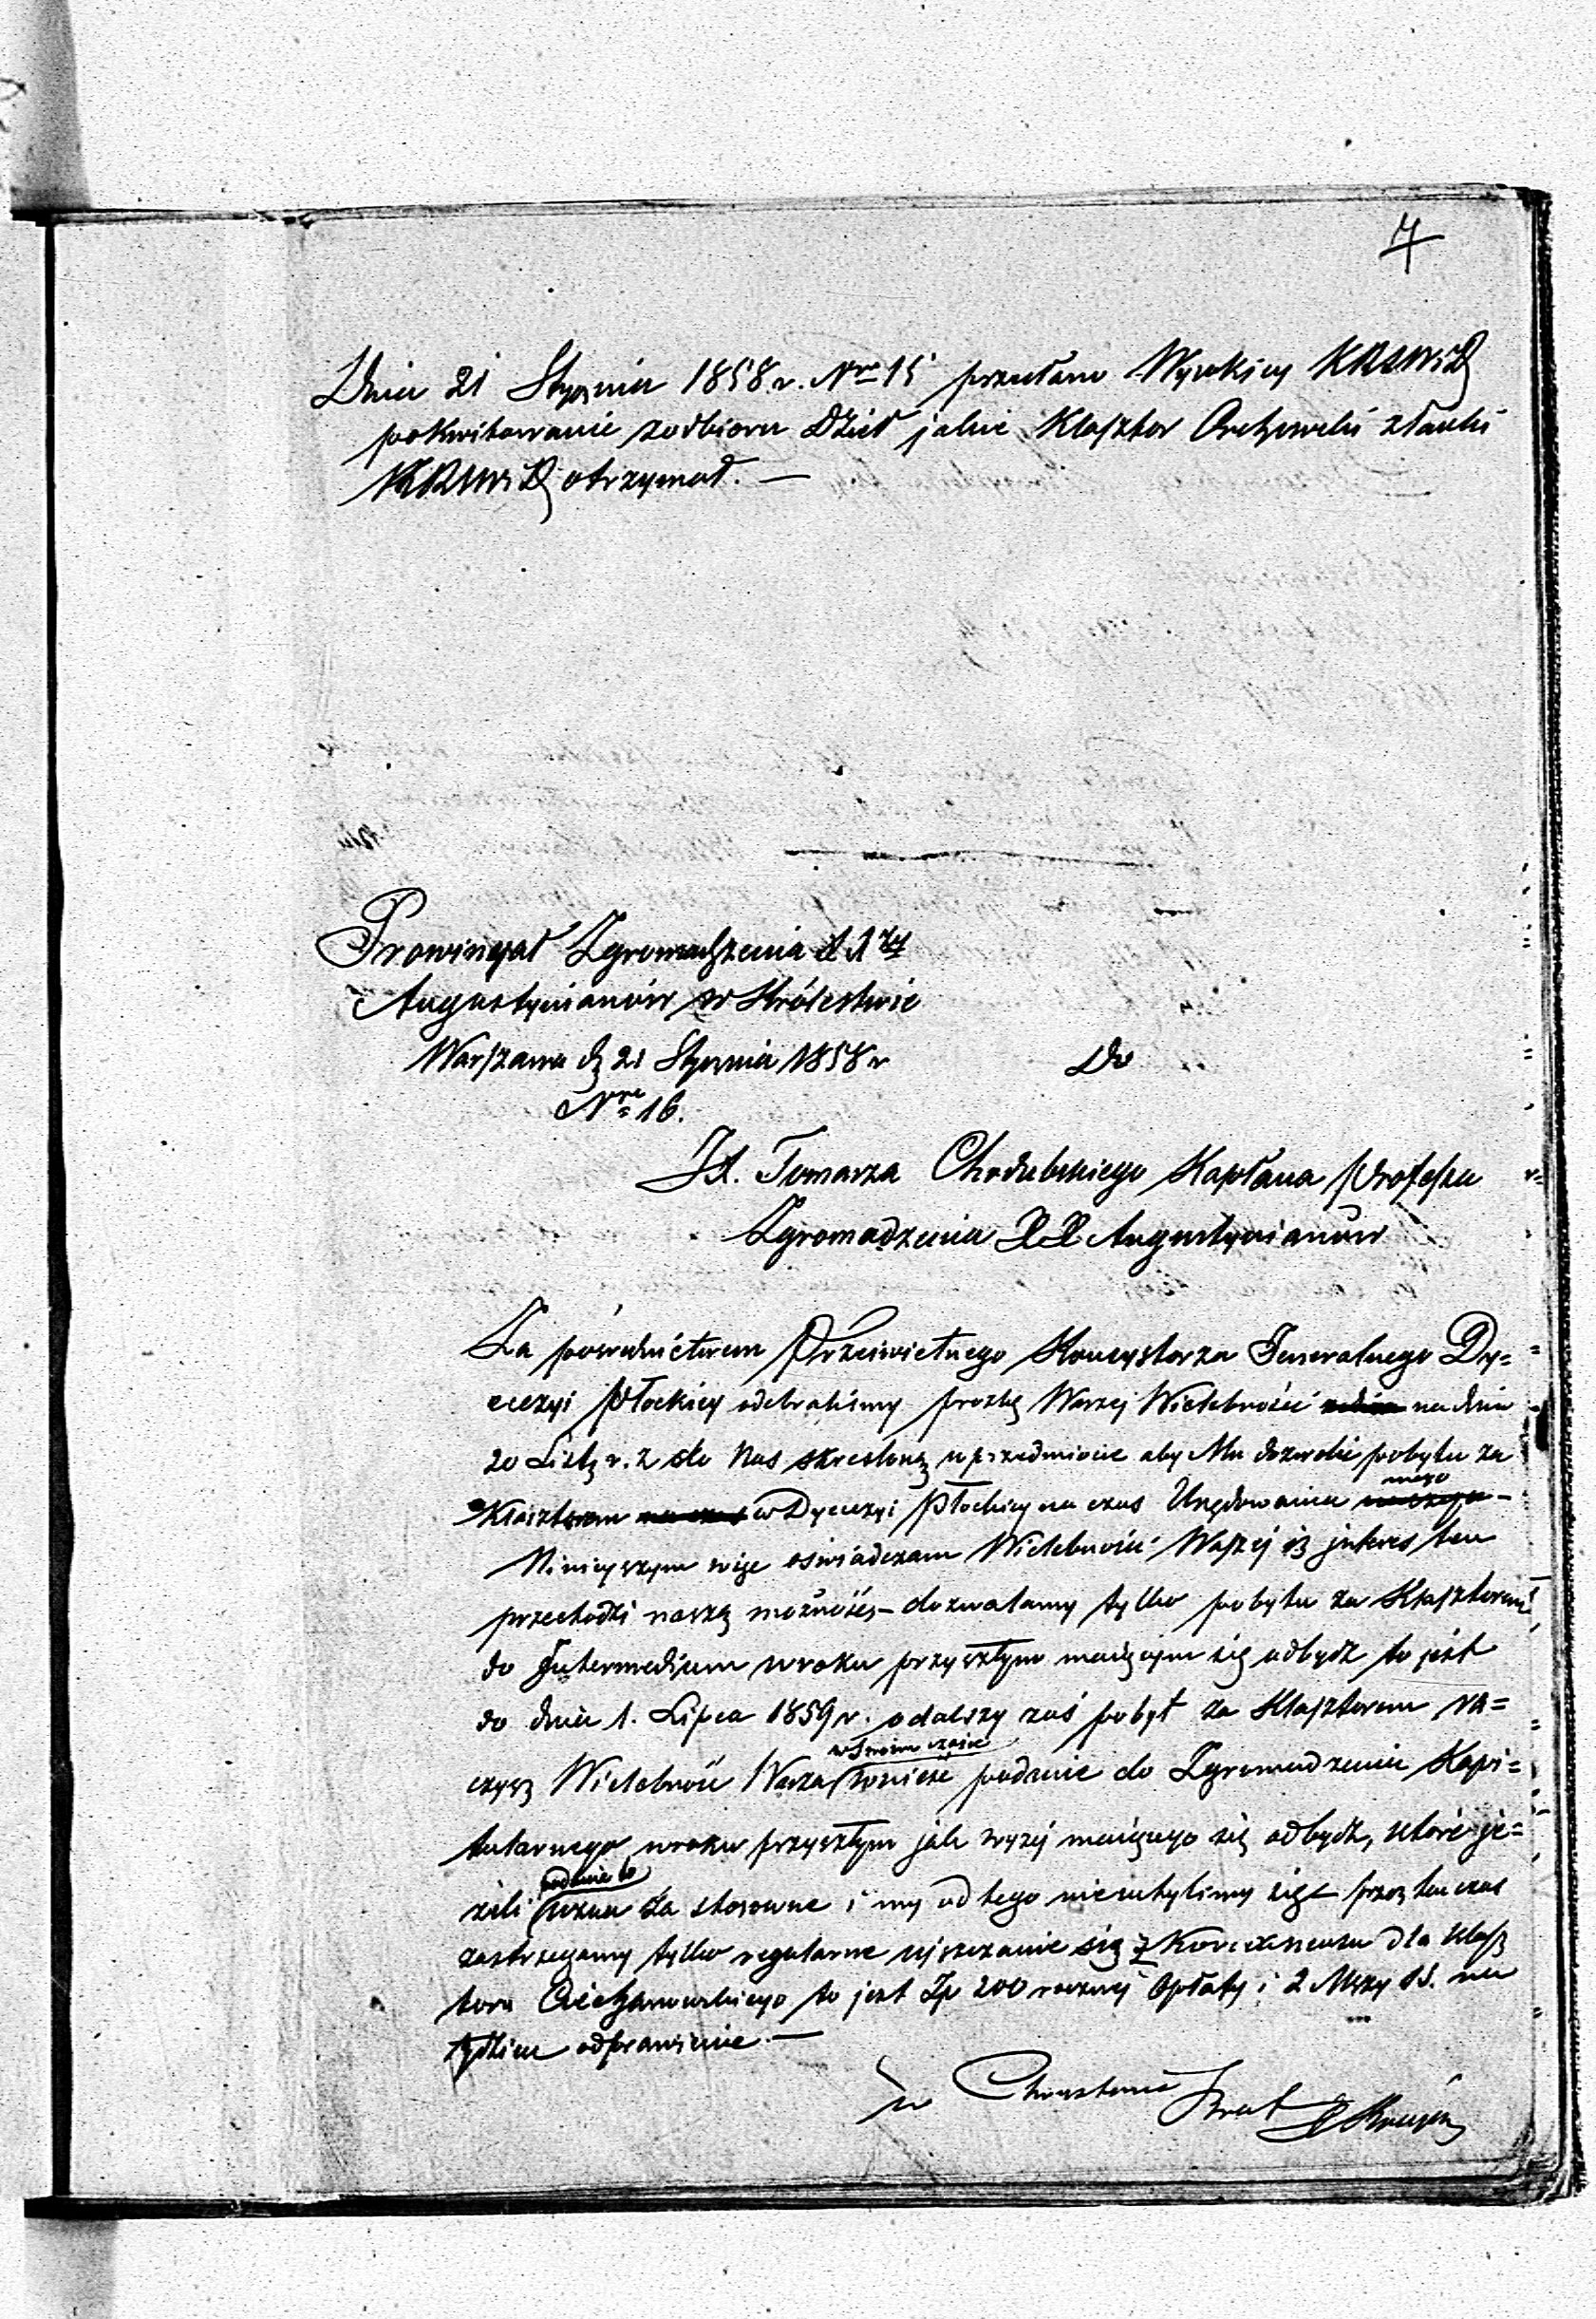 7
Dnia 21 Stycznia 1858 r. Nro 15 przesłano Wysokiey KRSWiD
pokwitowanie z odbioru Dzieł jakie Klasztor Orchowski z łaski
KRSWiD otrzymał. —
Prowincyał Zgromadzenia
Augustyanów w Królestwie
Warszawa d. 21 Stycznia 1858 r
Do
Nro 16.
Tomasza Chodubskiego Kapłana Professa
Zgromadzenia XX Augustyanów
Za pośrednictwem Prześwietnego Konsystorza Jeneralnego Dy=
ecezyi Płockiey odebraliśmy prożbę Waszej Wielebności na dniu
20 List. r. z do Nas skresloną w przedmiocie aby Mu dozwolić pobytu za
Klasztorem w Dyecezyi Płockiey na czas Urzędowania mego
Ninieyszym więc oświadczam Wielebności Waszej iż interes ten
przechodzi naszą możność – dozwalamy tylko pobytu za Klasztorem
do Intermedium w roku przyszłym maiącym się odbydź to jest
do dnia 1. Lipca 1859 r. o dalszy zaś pobyt za Klasztorem ra=
czysz Wielebność Wasza w Swoim czasie wnieść podanie do Zgromadzenia Kapi=
tularnego w roku przyszłym jak wyżej maiącego się odbydź, które je=
żeli podanie to uzna za stosowne i my od tego nieuchylimy się – przez ten czas
zastrzegamy tylko regularne uiszczanie się z dla Klasz
toru Ciechanowskiego to jest Zp 200 rocznej Opłaty i 2 Mszy SS. na
tydzień odprawienie. —
w Chrystusie Brat